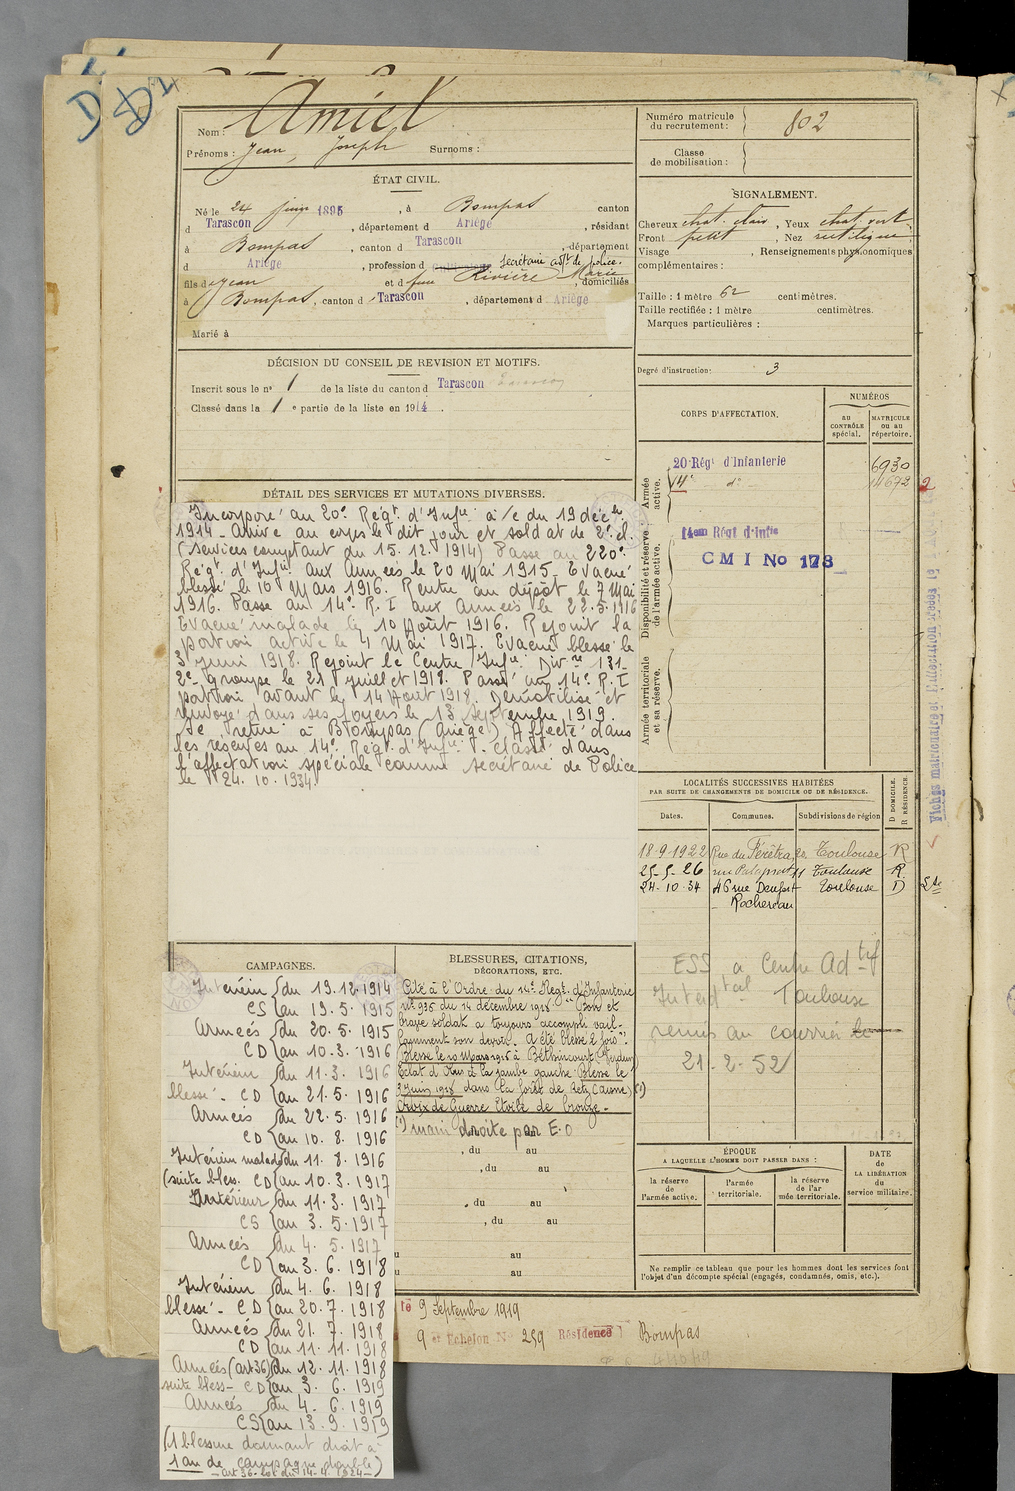 Nom : Amiel
Prénoms : Jean, Joseph Surnoms :
Numéro matricule du recrutement : 802
Classe de mobilisation :
ÉTAT CIVIL.
Né le 24 juin 1895, à Bompas canton
d Tarascon, département d Ariège, résidant
à Bompas, canton d Tarascon, département
d Ariège, profession d secrétaire adjt de police.
fils de Jean et de feue Rivière Marie, domiciliés
à Bompas, canton d Tarascon, département d Ariège
Marié à
SIGNALEMENT.
Cheveux chat. clair, Yeux chat. vert
Front petit, Nez rectiligne
Visage , Renseignements physionomiques
complémentaires :
Taille : 1 mètre 62 centimètres.
Taille rectifiée : 1 mètre centimètres.
Marques particulières :
Degré d'instruction : 3
DÉCISION DU CONSEIL DE REVISION ET MOTIFS.
Inscrit sous le n° 1 de la liste du canton d Tarascon
Classé dans la 1 e partie de la liste en 1914.
CORPS D'AFFECTATION.
NUMÉROS
au CONTRÔLE spécial.
MATRICULE ou au répertoire.
Armée active.
20 Régt d'Infanterie 6930
14e do 14672
2
Disponibilité et réserve de l'armée active.
14em Régt d'Infie
CMI No 173
Armée territoriale et sa réserve.
DÉTAIL DES SERVICES ET MUTATIONS DIVERSES.
Incorporé au 20e Régt d'Infie à/c du 19 décbre
1914 - Arrivé au corps le dit jour et soldat de 2e cl.
(services comptant du 15.12.1914) Passé au 220e
Régt d'Infie aux Armées le 20 Mai 1915 - Evacué
blessé le 10 Mars 1916. Rentré au dépôt le 7 Mai
1916. Passé au 14e R.I aux Armées le 22.5.1916
Evacué malade le 10 Août 1916. Rejoint la
portion active le 4 Mai 1917. Evacué blessé le
3 Juin 1918. Rejoint le Centre Infie Divre 131 -
2e groupe le 21 Juillet 1918. Passé au 14e R.I
portion avant le 14 Août 1918. Démobilisé et
renvoyé dans ses foyers le 13 Septembre 1919.
Se retire à Bompas (Ariège) Affecté dans
les réserves au 14e Régt d'Infie. Classé dans
l'affectation spéciale comme secrétaire de Police
le 24.10.1934.
LOCALITÉS SUCCESSIVES HABITÉES
PAR SUITE DE CHANGEMENTS DE DOMICILE OU DE RÉSIDENCE.
Dates. Communes. Subdivisions de région
D DOMICILE. R RÉSIDENCE.
18-9-1922 Rue du Férétra, 20 Toulouse R
25-5-26 rue Palaprat 11 Toulouse R.
24-10-34 46 rue Denfert Toulouse D
- Rochereau
ESS a Centre Adtif
Interdtal Toulouse
remis au courrier le
21-2-52
CAMPAGNES.
Intérieur du 19.12.1914
CS au 19.5.1915
Armées du 20.5.1915
CD au 10.3.1916
Intérieur du 11.3.1916
blessé - CD au 21.5.1916
Armées du 22.5.1916
CD au 10.8.1916
Intérieur malade du 11.8.1916
(suite bless. CD au 10.3.1917
Intérieur du 11.3.1917
CS au 3.5.1917
Armées du 4.5.1917
CD au 3.6.1918
Intérieur du 4.6.1918
blessé - CD au 20.7.1918
Armées du 21.7.1918
CD au 11.11.1918
Armées (art 36) du 12.11.1918
suite bless - CD au 3.6.1919
Armées du 4.6.1919
CS au 13.9.1919
(1 blessure donnant droit à
1 an de campagne double)
- art 36 - loi du 14-4-1924 -
BLESSURES, CITATIONS,
DÉCORATIONS, ETC.
Cité à l'Ordre du 14e Régt d'Infanterie
n° 935 du 14 décembre 1918 "Bon et
brave soldat a toujours accompli vail-
lamment son devoir. A été blessé 2 fois".
Blessé le 10 Mars 1916 à Béthincourt (Verdun)
Eclat d'obus à la jambe gauche. Blessé le
3 Juin 1918 dans la forêt de Retz (Aisne) (1)
Croix de Guerre Etoile de bronze -
(1) main droite par E.O
, du au
, du au
, du au
, du au
au
au
ÉPOQUE
A LAQUELLE L'HOMME DOIT PASSER DANS :
la réserve de l'armée active.
l'armée territoriale.
la réserve de l'armée territoriale.
DATE de LA LIBÉRATION du service militaire.
Ne remplir ce tableau que pour les hommes dont les services font
l'objet d'un décompte spécial (engagés, condamnés, omis, etc.).
9 Septembre 1919
9 et Echelon N° 259 Résidence Bompas